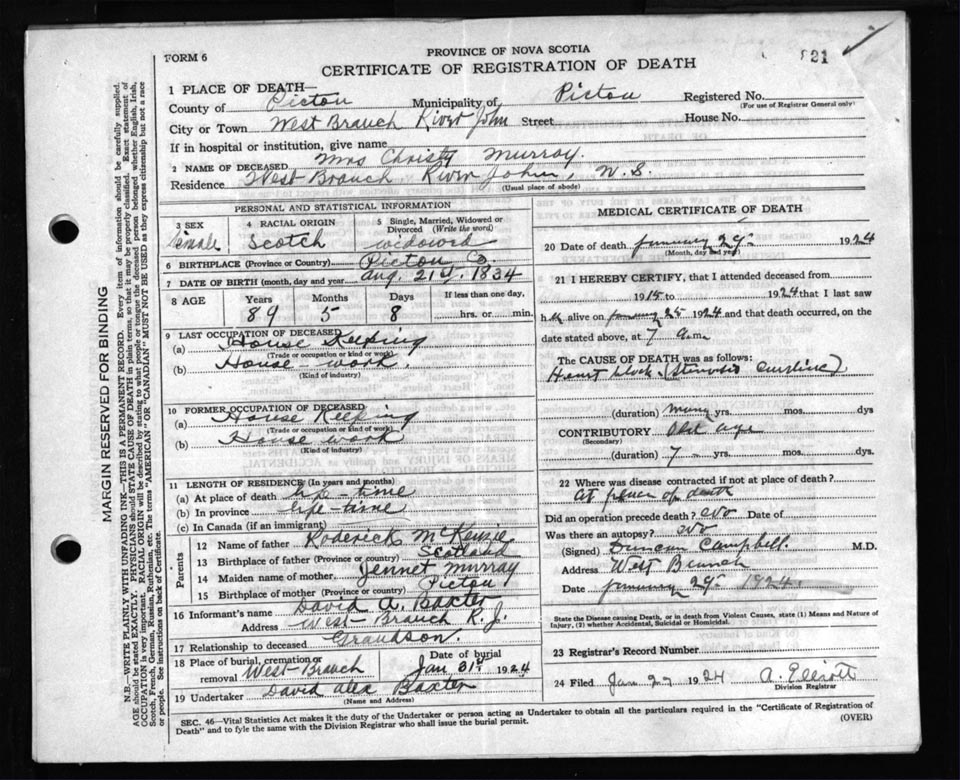 FORM 6
PROVINCE OF NOVA SCOTIA
821
CERTIFICATE OF REGISTRATION OF DEATH
1 PLACE OF DEATH—
County of Pictou Municipality of Pictou Registered No.
(For use of Registrar General only)
City or Town West Branch River John Street House No.
If in hospital or institution, give name
2 NAME OF DECEASED Mrs Christy Murray.
Residence West Branch River John, N.S.
(Usual place of abode)
PERSONAL AND STATISTICAL INFORMATION
3 SEX female
4 RACIAL ORIGIN Scotch
5 Single, Married, Widowed or Divorced (Write the word) widowed
6 BIRTHPLACE (Province or Country) Pictou Co.
7 DATE OF BIRTH (month, day and year) Aug. 21st, 1834
8 AGE Years Months Days If less than one day,
89 5 8 hrs. or min.
9 LAST OCCUPATION OF DECEASED
(a) House Keeping
(Trade or occupation or kind of work)
(b) House work.
(Kind of industry)
10 FORMER OCCUPATION OF DECEASED
(a) House Keeping
(Trade or occupation or kind of work)
(b) House work
(Kind of industry)
11 LENGTH OF RESIDENCE (In years and months)
(a) At place of death life-time
(b) In province life-time
(c) In Canada (if an immigrant)
Parents
12 Name of father Roderick McKenzie
13 Birthplace of father (Province or country) Scotland
14 Maiden name of mother Jennet Murray
15 Birthplace of mother (Province or country) Pictou
16 Informant's name David A. Baxter
Address West-Branch R.J.
17 Relationship to deceased Grandson.
18 Place of burial, cremation or removal West-Branch
Date of burial Jan 31st 1924
19 Undertaker David Alex Baxter
(Name and Address)
MEDICAL CERTIFICATE OF DEATH
20 Date of death January 29 1924
(Month, day and year)
21 I HEREBY CERTIFY, that I attended deceased from
1915 to 1924 that I last saw
h alive on January 25 1924 and that death occurred, on
date stated above, at 7 a.m
The CAUSE OF DEATH was as follows:
Heart block (Stenosis
(duration) many yrs. mos. dys
CONTRIBUTORY Old Age
(Secondary)
(duration) 7 yrs. mos. dys.
22 Where was disease contracted if not at place of death?
At place of death
Did an operation precede death? No Date of
Was there an autopsy? No
(Signed) Duncan Campbell. M.D.
Address West Branch
Date January 29 1924.
State the Disease causing Death, or in death from Violent Causes, state (1) Means and Nature of Injury, (2) whether Accidental, Suicidal or Homicidal.
23 Registrar's Record Number
24 Filed Jan 1924 A. Elliott
Division Registrar
SEC. 46—Vital Statistics Act makes it the duty of the Undertaker or person acting as Undertaker to obtain all the particulars required in the "Certificate of Registration of
Death" and to fyle the same with the Division Registrar who shall issue the burial permit.
(OVER)
MARGIN RESERVED FOR BINDING
N.B.—WRITE PLAINLY WITH UNFADING INK—THIS IS A PERMANENT RECORD. Every item of information should be carefully supplied.
AGE should be stated EXACTLY. PHYSICIANS should STATE CAUSE OF DEATH in plain terms, so that it may be properly classified. Exact statement of
OCCUPATION is very important. RACIAL ORIGIN will be described by stating to what people or tongue the deceased person belonged whether English, Irish,
Scotch, French, German, Russian, Ruthenian, etc. The terms "AMERICAN" or "CANADIAN" MUST NOT BE USED as they express citizenship but not a race
or people. See instructions on back of Certificate.